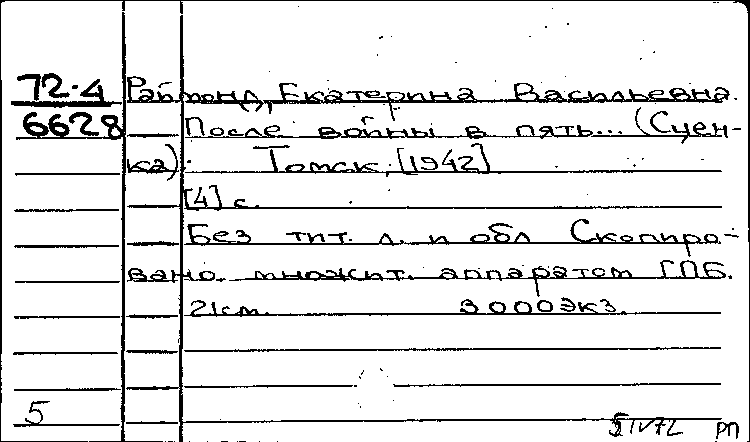 72-4
6628
Раймонд, Екатерина Васильевна.
После войны в пять... (Сцен-
ка). Томск, [1942].
[4] с.
Без тит. л. и обл. Скопиро-
вано множит. аппаратом ГПБ.
21см. 3000экз.
5
5 IV 72 РП